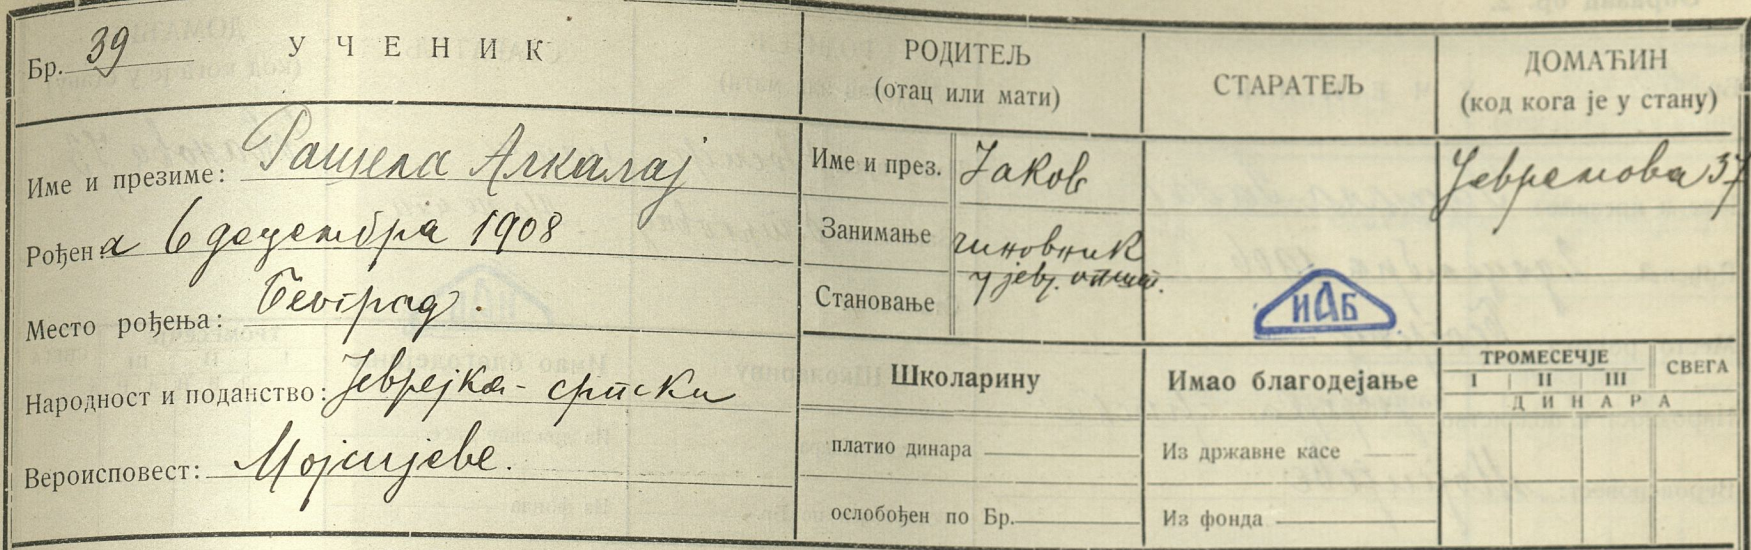 Бр. 39 УЧЕНИК
Име и презиме: Рашела Алкалај
Рођена 6 децембра 1908
Место рођења: Београд.
Народност и поданство: Јеврејка - српски
Вероисповест: Мојсијеве.
РОДИТЕЉ
(отац или мати)
Име и през. Јаков
Занимање чиновник
у јевр. општ.
Становање
СТАРАТЕЉ
ИАБ
ДОМАЋИН
(код кога је у стану)
Јевремова 37
Школарину
платио динара
ослобођен по Бр.
Имао благодејање
Из државне касе
Из фонда
ТРОМЕСЕЧЈЕ
I II III
СВЕГА
ДИНАРА